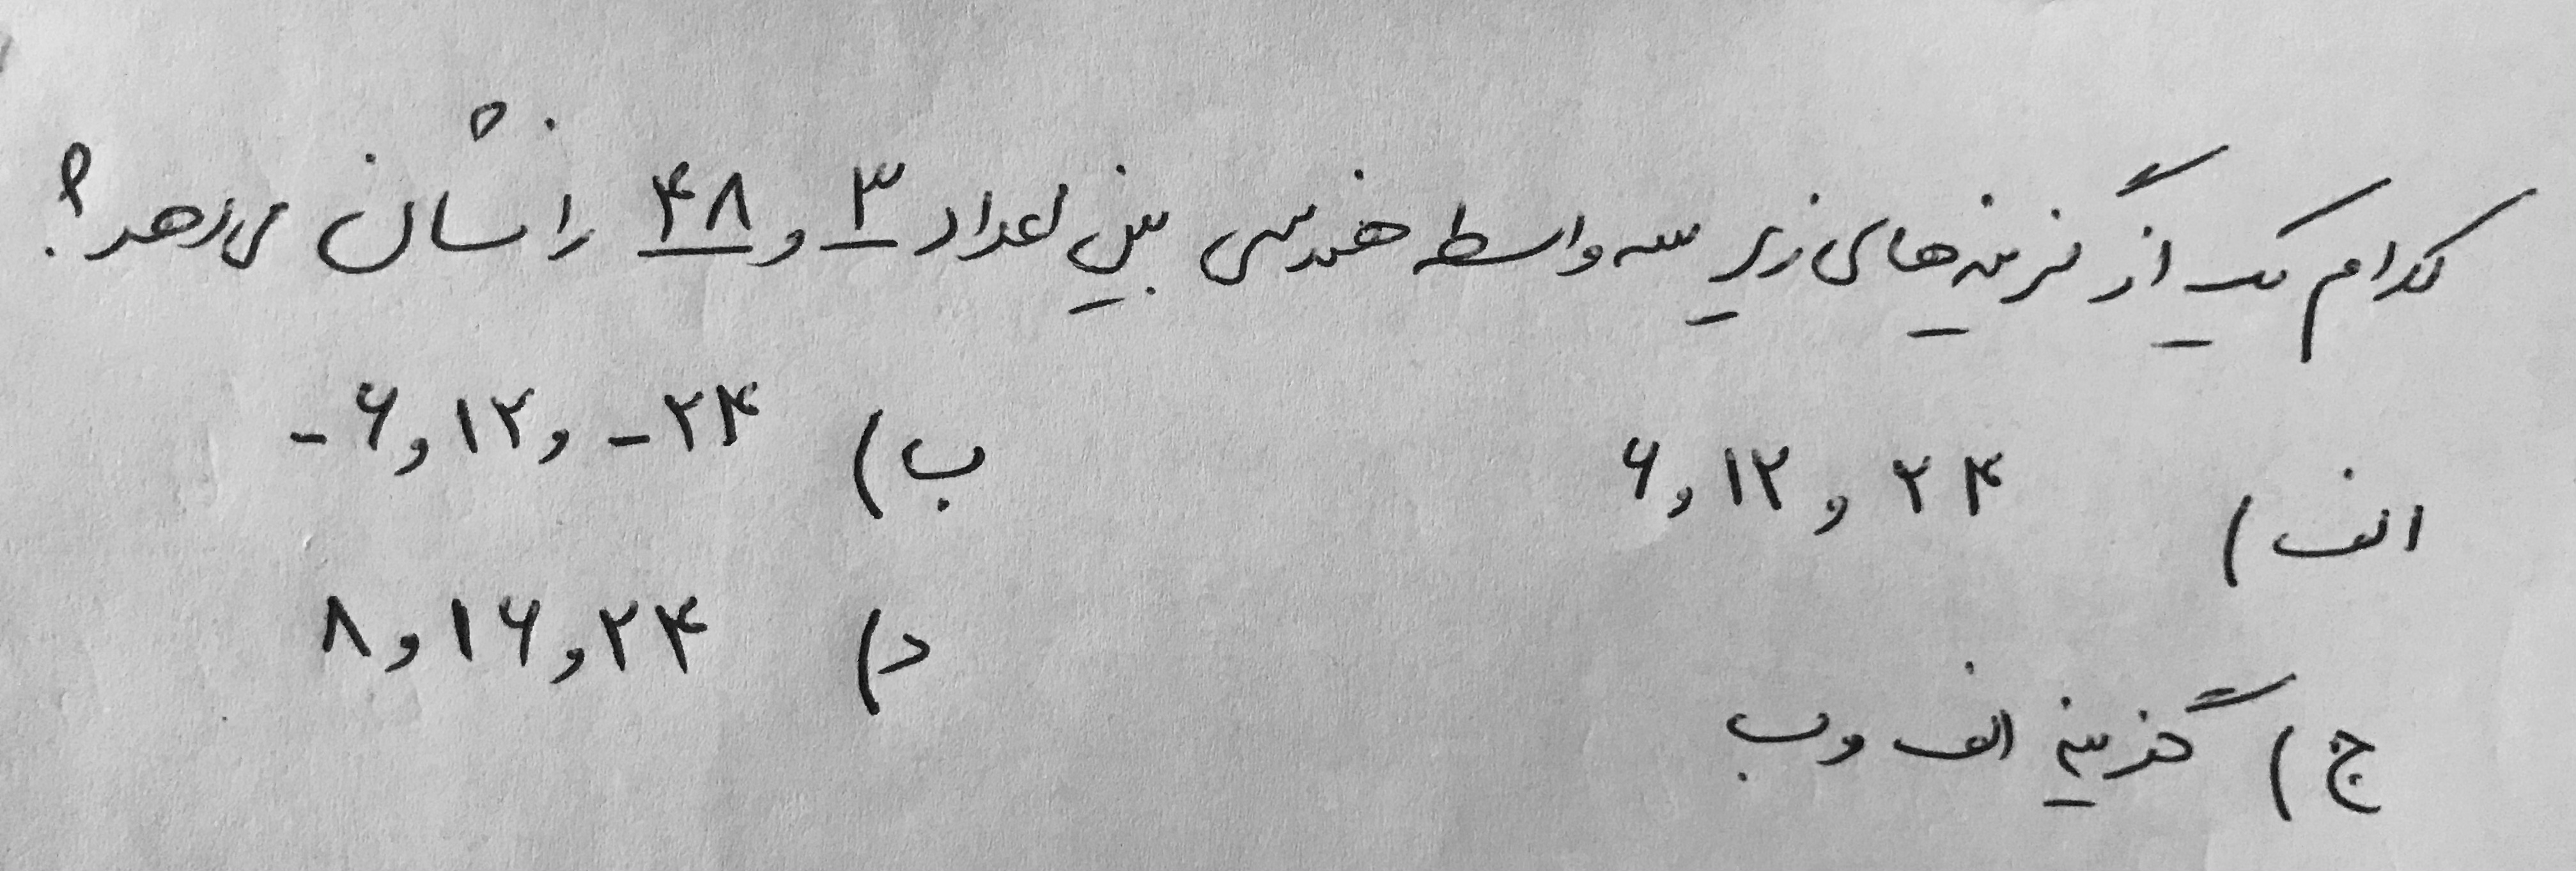 کدام یک از گزینه‌های زیر سه واسطه هندسی بین اعداد ۳ و ۴۸ را نشان می‌دهد؟
الف) ۶, ۱۲, ۲۴
ب) -۶, ۱۲, -۲۴
ج) گزینه الف و ب
د) ۸, ۱۶, ۲۴